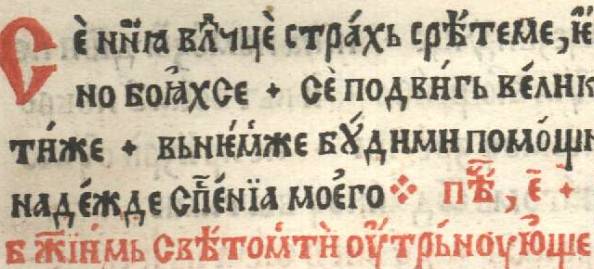 Сè нн҃ꙗ влⷣчцè страⷯ҇ь срѣ́теме, ѥ҆
но бои́ахсе + Сè подви́гь вéлик
ти́же + вьнѥ́мже бꙋ́ди ми помо́щн
наде́жде сп҃сéнїа моéго ⁘ пѣⷭ҇, е҃ +
Бж҃їимь свѣтомь тѝ оу҆трьнꙋю́ще